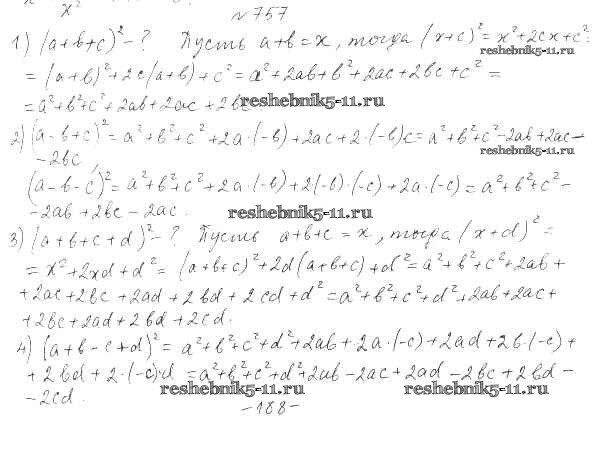 №757
1) (a+b+c)² - ? Пусть a+b=x, тогда (x+c)² = x²+2cx+c² =
reshebnik5-11.ru
= (a+b)²+2c(a+b)+c² = a²+2ab+b²+2ac+2bc+c² =
= a²+b²+c²+2ab+2ac+2bc
reshebnik5-11.ru
2) (a-b+c)² = a²+b²+c²+2a·(-b)+2ac+2·(-b)c = a²+b²+c²-2ab+2ac-
reshebnik5-11.ru
-2bc,
(a-b-c)² = a²+b²+c²+2a·(-b)+2(-b)·(-c)+2a·(-c) = a²+b²+c²-
-2ab+2bc-2ac.
reshebnik5-11.ru
3) (a+b+c+d)² - ? Пусть a+b+c=x, тогда (x+d)² =
= x²+2xd+d² = (a+b+c)²+2d(a+b+c)+d² = a²+b²+c²+2ab+
+2ac+2bc+2ad+2bd+2cd+d² = a²+b²+c²+d²+2ab+2ac+
+2bc+2ad+2bd+2cd.
4) (a+b-c+d)² = a²+b²+c²+d²+2ab+2a·(-c)+2ad+2b·(-c)+
+2bd+2·(-c)·d = a²+b²+c²+d²+2ab-2ac+2ad-2bc+2bd-
reshebnik5-11.ru reshebnik5-11.ru
-2cd.
-188-